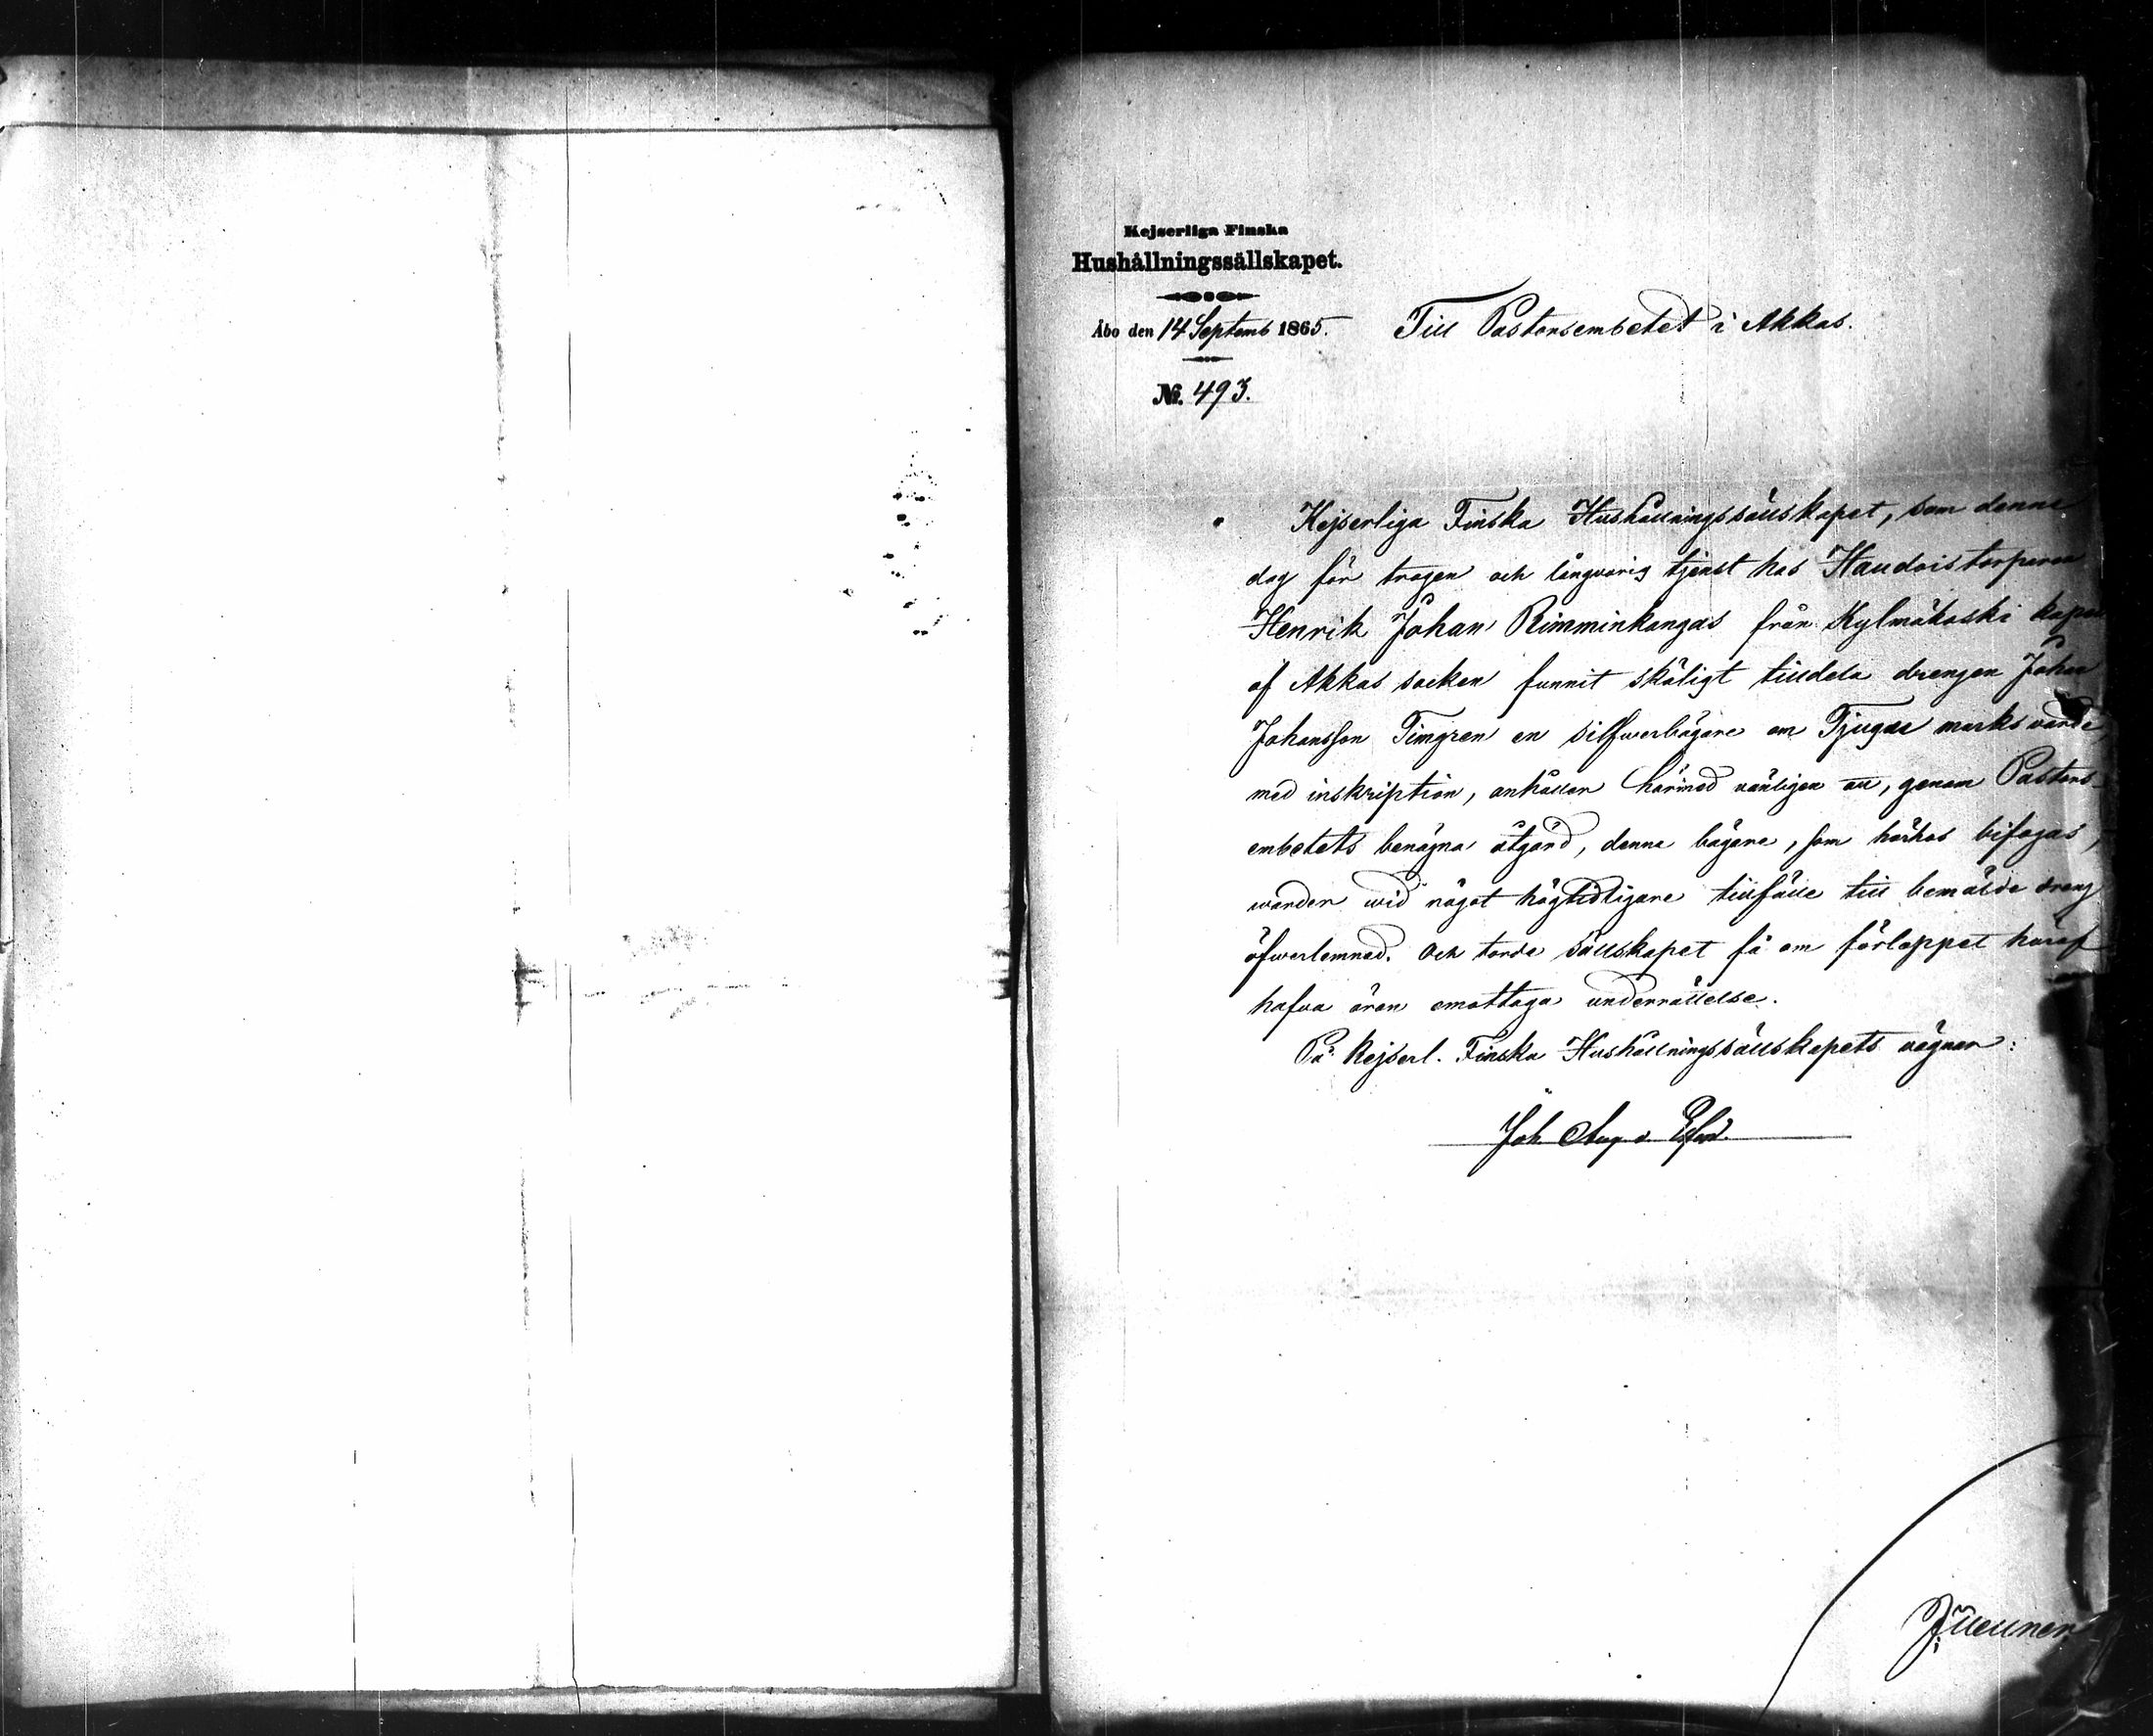 Kejserliga Finska
Hushållningssällskapet.
Åbo den 14 Septemb 1865.
Till Pastorsembetet i Akkas.
No. 493.
Kejserliga Finska Hushållningssällskapet, som denna
dag för trogen och långvarig tjenst hos Haudois torparen
Henrik Johan Rimminkangas från Kylmäkoski
af Akkas socken funnit skäligt tilldela drengen Johan
Johansson Timgren en silfwerbägare om Tjugu marks värde,
med inskription, anhåller härmed vänligen att, genom Pastors-
embetets benägna åtgärd, denna bägare, som härhos bifogas,
warder wid något högtidligare tillfälle till bemälde dreng
öfwerlemnad. Och torde Sällskapet få om förloppet häraf
hafva äran emottaga underrättelse.
På Kejserl. Finska Hushållningssällskapets vägnar:
Joh. Aug. v. Essen.